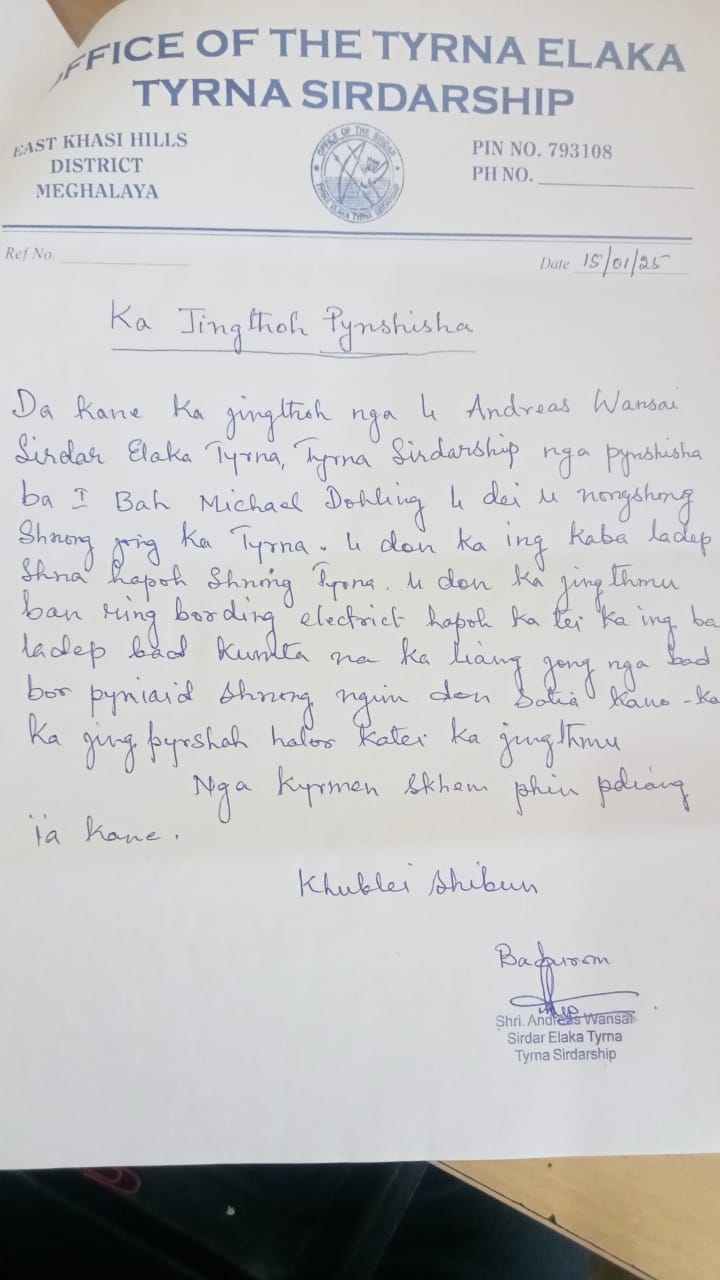 OFFICE OF THE TYRNA ELAKA
TYRNA SIRDARSHIP
EAST KHASI HILLS
DISTRICT
MEGHALAYA
OFFICE OF THE SIRDAR
TYRNA ELAKA TYRNA SIRDARSHIP
PIN NO. 793108
PH NO.
Ref No.
Date 15/01/25
Ka Jingthoh Pynshisha
Da kane ka jingthoh nga U Andreas Wansai
Sirdar Elaka Tyrna, Tyrna Sirdarship nga pynshisha
ba I Bah Michael Dohling U dei u nongshong
Shnong jong ka Tyrna. U don ka ing kaba ladep
Shna hapoh Shnong Tyrna. U don ka jingthmu
ban ring bording electrict hapoh ka tei ka ing ba
ladep bad kumta na ka liang jong nga bad
bor pyniaid Shnong ngim don Satia kano-ka
ka jing pyrshah halor katei ka jingthmu
Nga kyrmen skhem phin pdiang
ïa kane.
Khublei shibun
Shri. Andreas Wansai
Sirdar Elaka Tyrna
Tyrna Sirdarship